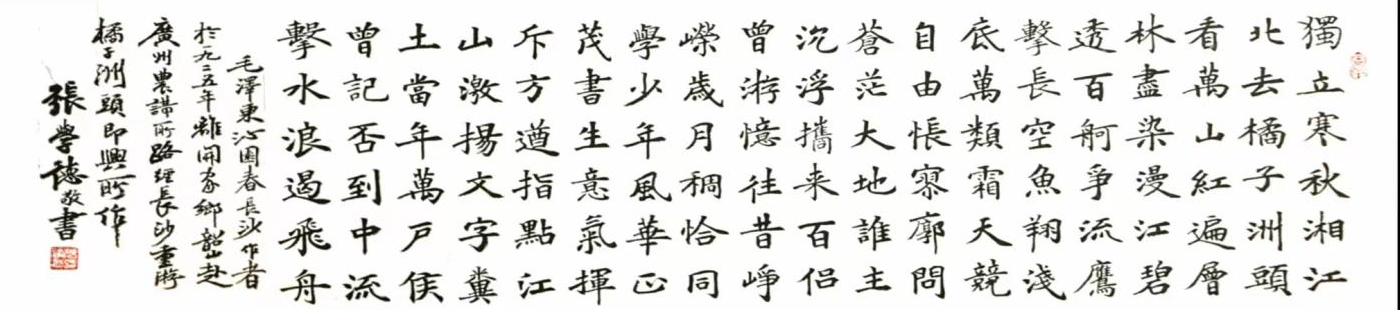 獨立寒秋湘江
北去橘子洲頭
看萬山紅遍層
林盡染漫江碧
透百舸爭流鷹
擊長空魚翔淺
底萬類霜天競
自由悵寥廓問
蒼茫大地誰主
沉浮攜来百侣
曾游憶往昔崢
嶸歲月稠恰同
學少年風華正
茂書生意氣揮
斥方遒指點江
山激揚文字糞
土當年萬戶侯
曾記否到中流
擊水浪遏飛舟
毛澤東沁園春長沙作者
於一九二五年離開家鄉韶山赴
廣州農講所路經長沙重游
橘子洲頭即興所作
張學德敬書